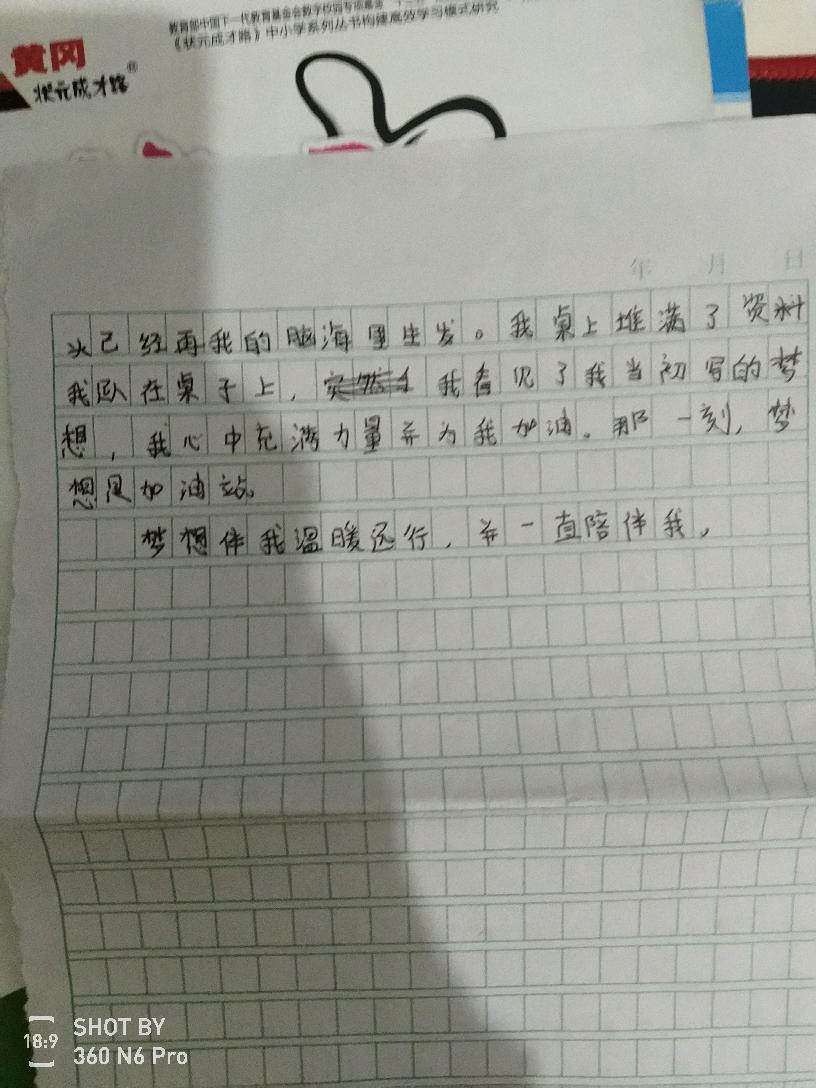 教育部中国下一代教育基金会数字校园专项基金
《状元成才路》中小学系列丛书构建高效学习模式研究
黄冈
状元成才路®
年 月 日
次已经再我的脑海里生发。我桌上堆满了资料
我趴在桌子上，我看见了我当初写的梦
想，我心中充满力量并为我加油。那一刻，梦
想是加油站。
梦想伴我温暖远行，并一直陪伴我。
18:9
SHOT BY
360 N6 Pro